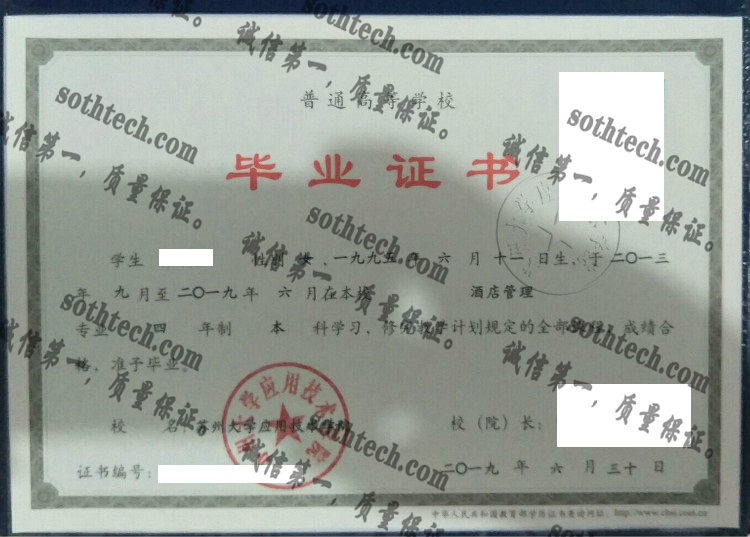 普通高等学校
毕业证书
学生 性别 女 ,一九九五年 六 月 十一 日生,于 二〇一三
年 九 月至 二〇一九 年 六 月在本校 酒店管理
专业 四 年制 本 科学习,修完教学计划规定的全部课程,成绩合
格,准予毕业。
校 名: 苏州大学应用技术学院
校(院)长:
证书编号:
二〇一九 年 六 月 三十 日
中华人民共和国教育部学历证书查询网址: http://www.chsi.com.cn
苏州大学应用技术学院
sothtech.com
诚信第一,质量保证。
sothtech.com
诚信第一,质量保证。
sothtech.com
诚信第一,质量保证。
sothtech.com
诚信第一,质量保证。
sothtech.com
诚信第一,质量保证。
sothtech.com
诚信第一,质量保证。
诚信第一,质量保证。
诚信第一,质量保证。